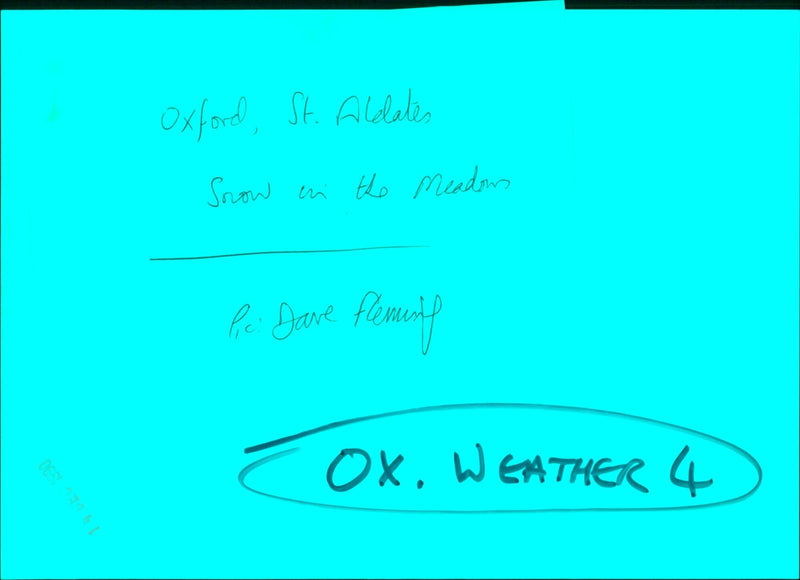 Oxford, St. Aldates
Snow in the Meadows
Pic: Dave Fleming
OX. WEATHER 4